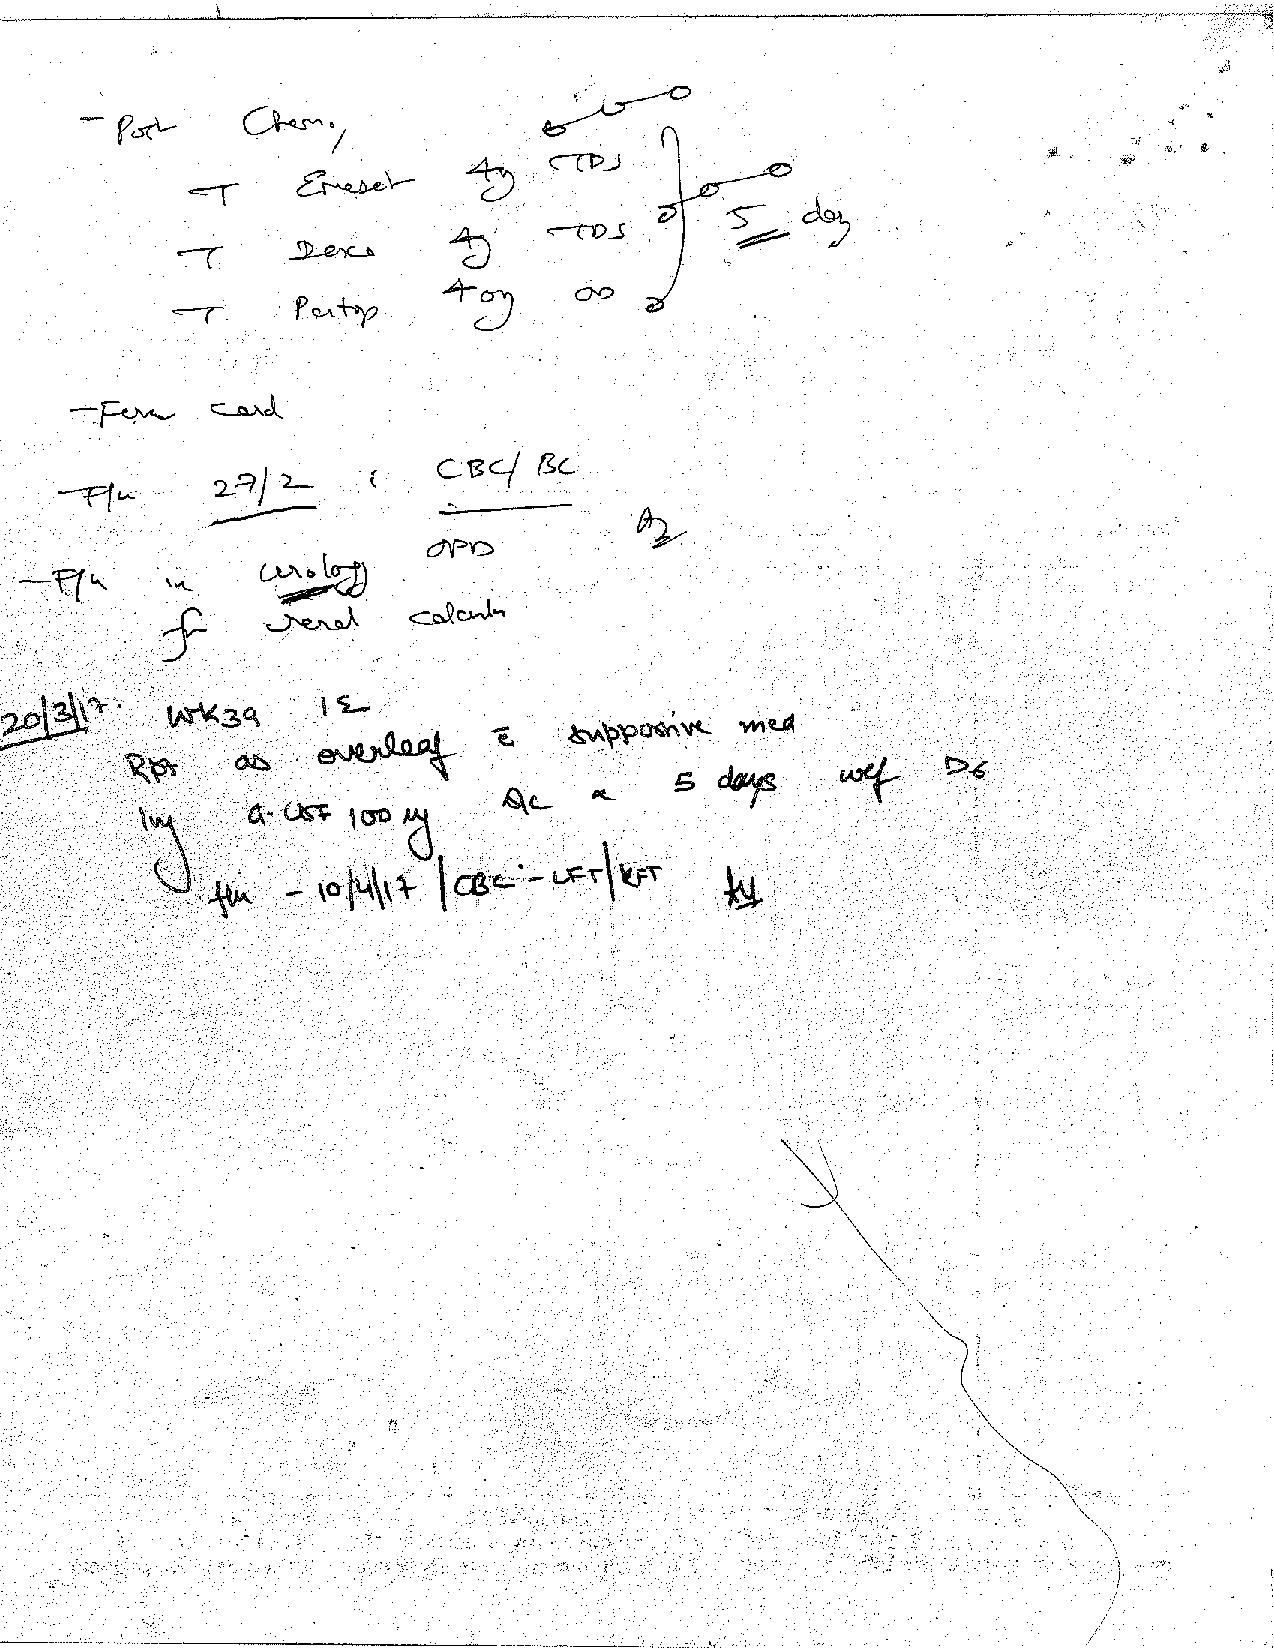 - Post Chemo,
→ T Emeset 4mg TDS
→ T Dexa 4mg TDS 5 day
→ T Pantop 40mg OD
- card
- F/u 27/2 c CBC/BC
- F/u in urology OPD
for renal calculus
20/3/17. WK39
Rpt as overleaf c̄ supportive med
Inj G-CSF 100 s/c x 5 days wef D6
f/u - 10/4/17 / CBC - LFT/KFT